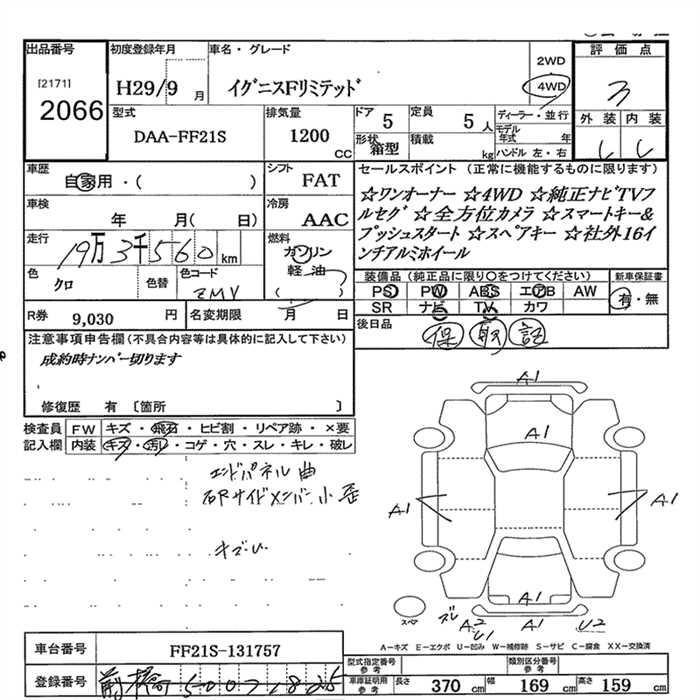 出品番号
[2171]
2066
初度登録年月
H29/9 月
車名・グレード
イグニスFリミテッド
2WD
4WD
評価点
3
型式
DAA-FF21S
排気量
1200 CC
ドア 5
形状 箱型
定員 5 人
積載 kg
ディーラー・並行
モデル年式 年
ハンドル 左・右
外装 内装
車歴
自家用・( )
シフト
FAT
車検
年 月( 日)
冷房
AAC
走行
19万3千560 km
燃料
ガソリン
軽油
( )
色
クロ
色替
色コード
ZMV
R券 9,030 円
名変期限 月 日
セールスポイント(正常に機能するものに限ります)
☆ワンオーナー ☆4WD ☆純正ナビTVフ
ルセグ ☆全方位カメラ ☆スマートキー&
プッシュスタート ☆スペアキー ☆社外16イ
ンチアルミホイール
装備品(純正品に限り○をつけてください)
新車保証書
PS PW ABS エアB AW
SR ナビ TV カワ
有・無
後日品
保 取 記
注意事項申告欄(不具合内容等は具体的に記入して下さい)
成約時ナンバー切ります
修復歴 有〔箇所 〕
検査員 FW キズ・飛石・ヒビ割・リペア跡・×要
記入欄 内装 キズ・汚レ・コゲ・穴・スレ・キレ・破レ
エンドパネル曲
右Rサイドメンバー小歪
A1
A1
A1
A1
A1
A1
スペア
ズレ
A2
U1
U2
車台番号 FF21S-131757
登録番号 前橋
A-キズ E-エクボ U-凹み W-補修跡 S-サビ C-腐食 XX-交換済
型式指定番号 参考
類別区分番号 参考
車庫証明用 参考
長さ 370 cm 幅 169 cm 高さ 159 cm